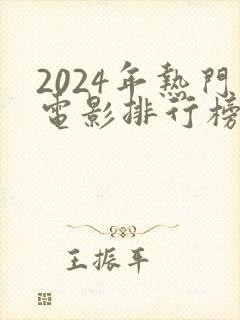 2024年熱門
電影排行榜
王振平